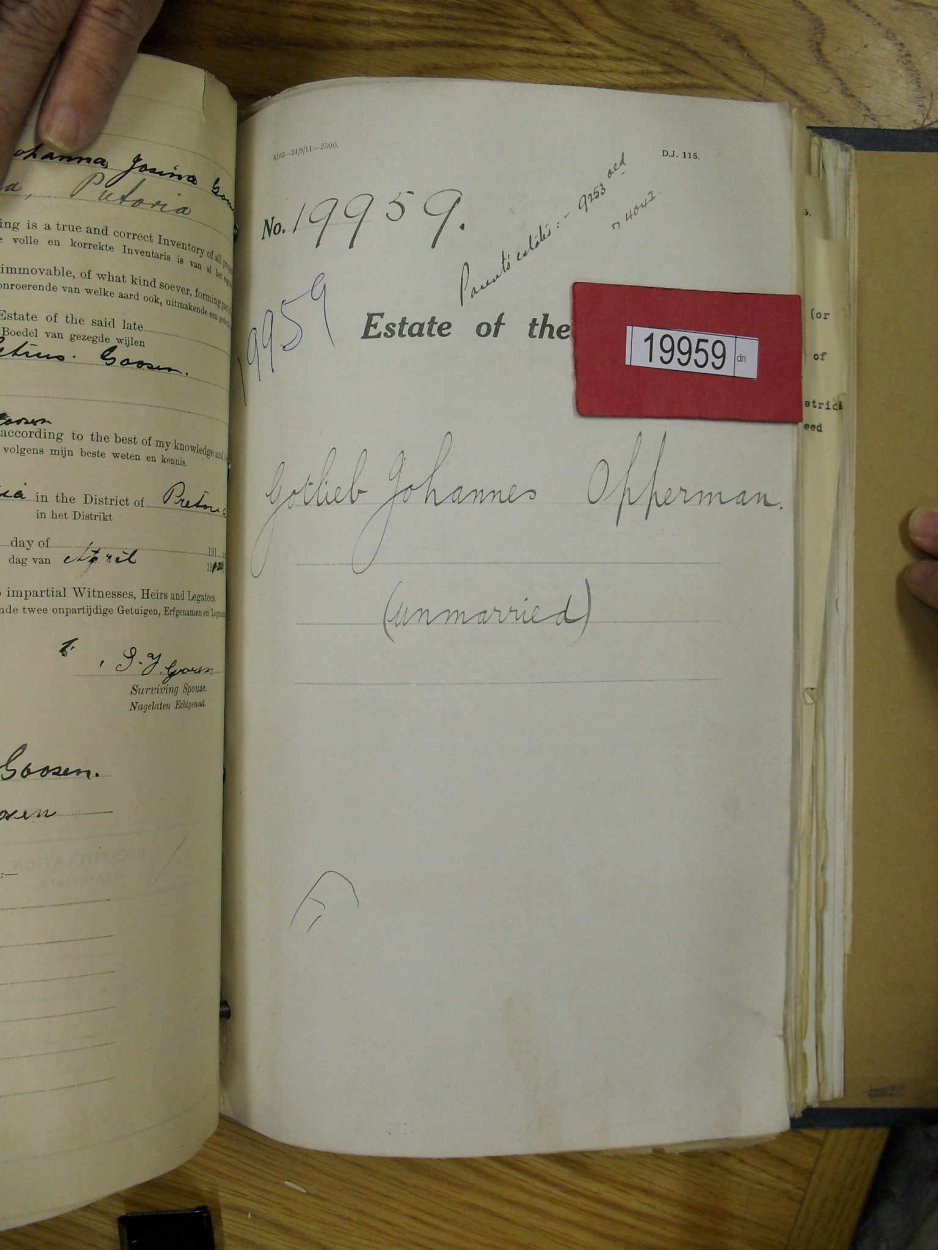 Johanna Josina
Pretoria
ing is a true and correct Inventory of all
e volle en korrekte Inventaris is van al het
immovable, of what kind soever, forming
onroerende van welke aard ook, uitmakende een
Estate of the said late
Boedel van gezegde wijlen
Goosen.
according to the best of my knowledge and
volgens mijn beste weten en kennis.
in the District of Pretoria
in het Distrikt
day of 191
dag van April
impartial Witnesses, Heirs and Legatees.
nde twee onpartijdige Getuigen, Erfgenamen en
Surviving Spouse.
Nagelaten Echtgenoot.
Goosen.
D.J. 115.
No. 19959.
Parents estates:- 9253 old
74042
19959
Estate of the
19959 dn
Gotlieb Johannes Opperman.
(unmarried)
(or
of
strict
eed